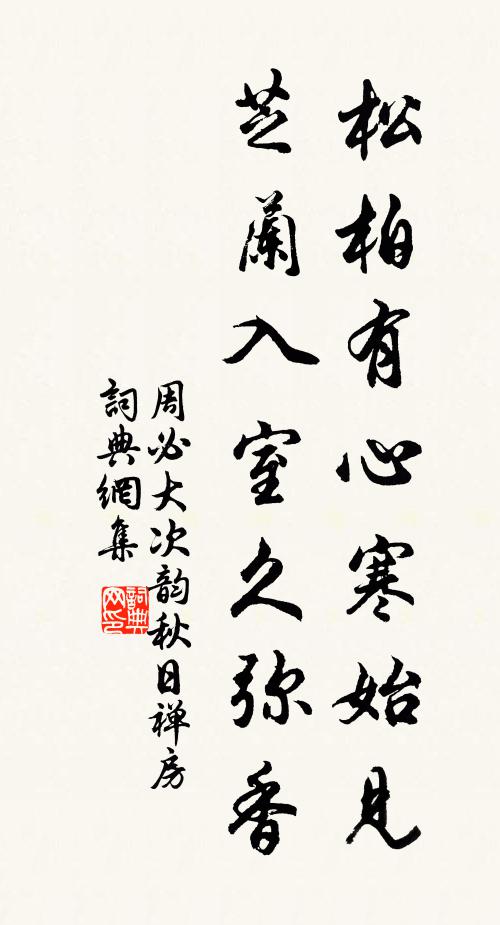 松柏有心寒始見
芝蘭入室久弥香
周必大次韵秋日禅房
詞典網集
詞典网印